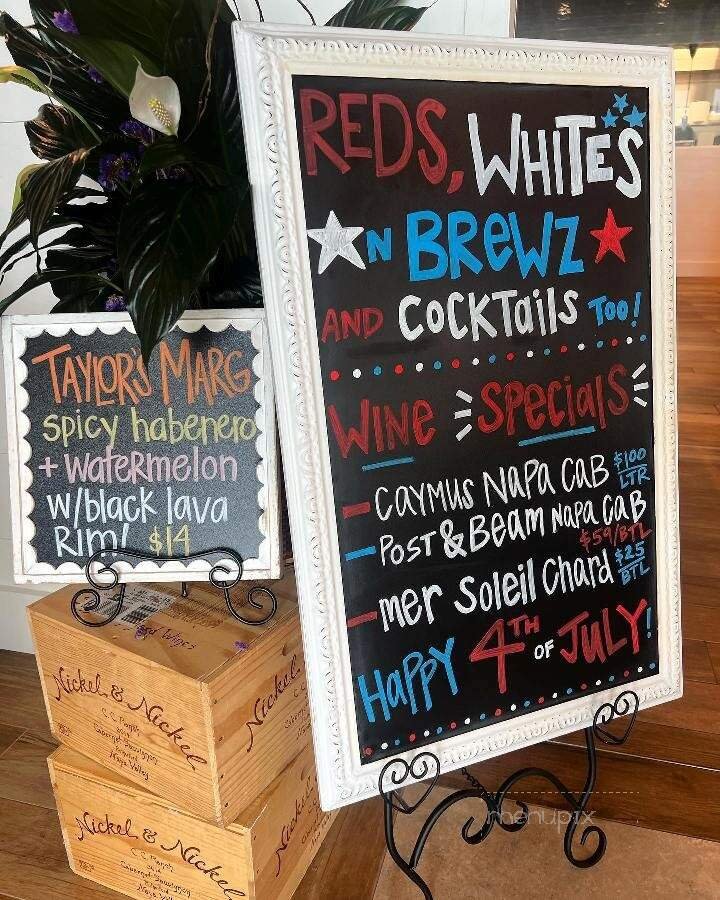 REDS, WHITES
N BREWZ
AND COCKTAILS TOO!
WINE SPECIALS
- CAYMUS NAPA CAB $100 LTR
- POST & BEAM NAPA CAB $59/BTL
- mer Soleil Chard $25 BTL
HAPPY 4TH OF JULY!
TAYLOR'S MARG
spicy habenero
+ watermelon
w/black lava
RIM! $14
Nickel & Nickel
Cabernet Sauvignon
Napa Valley
Nickel & Nickel
Cabernet Sauvignon
Napa Valley
menupix